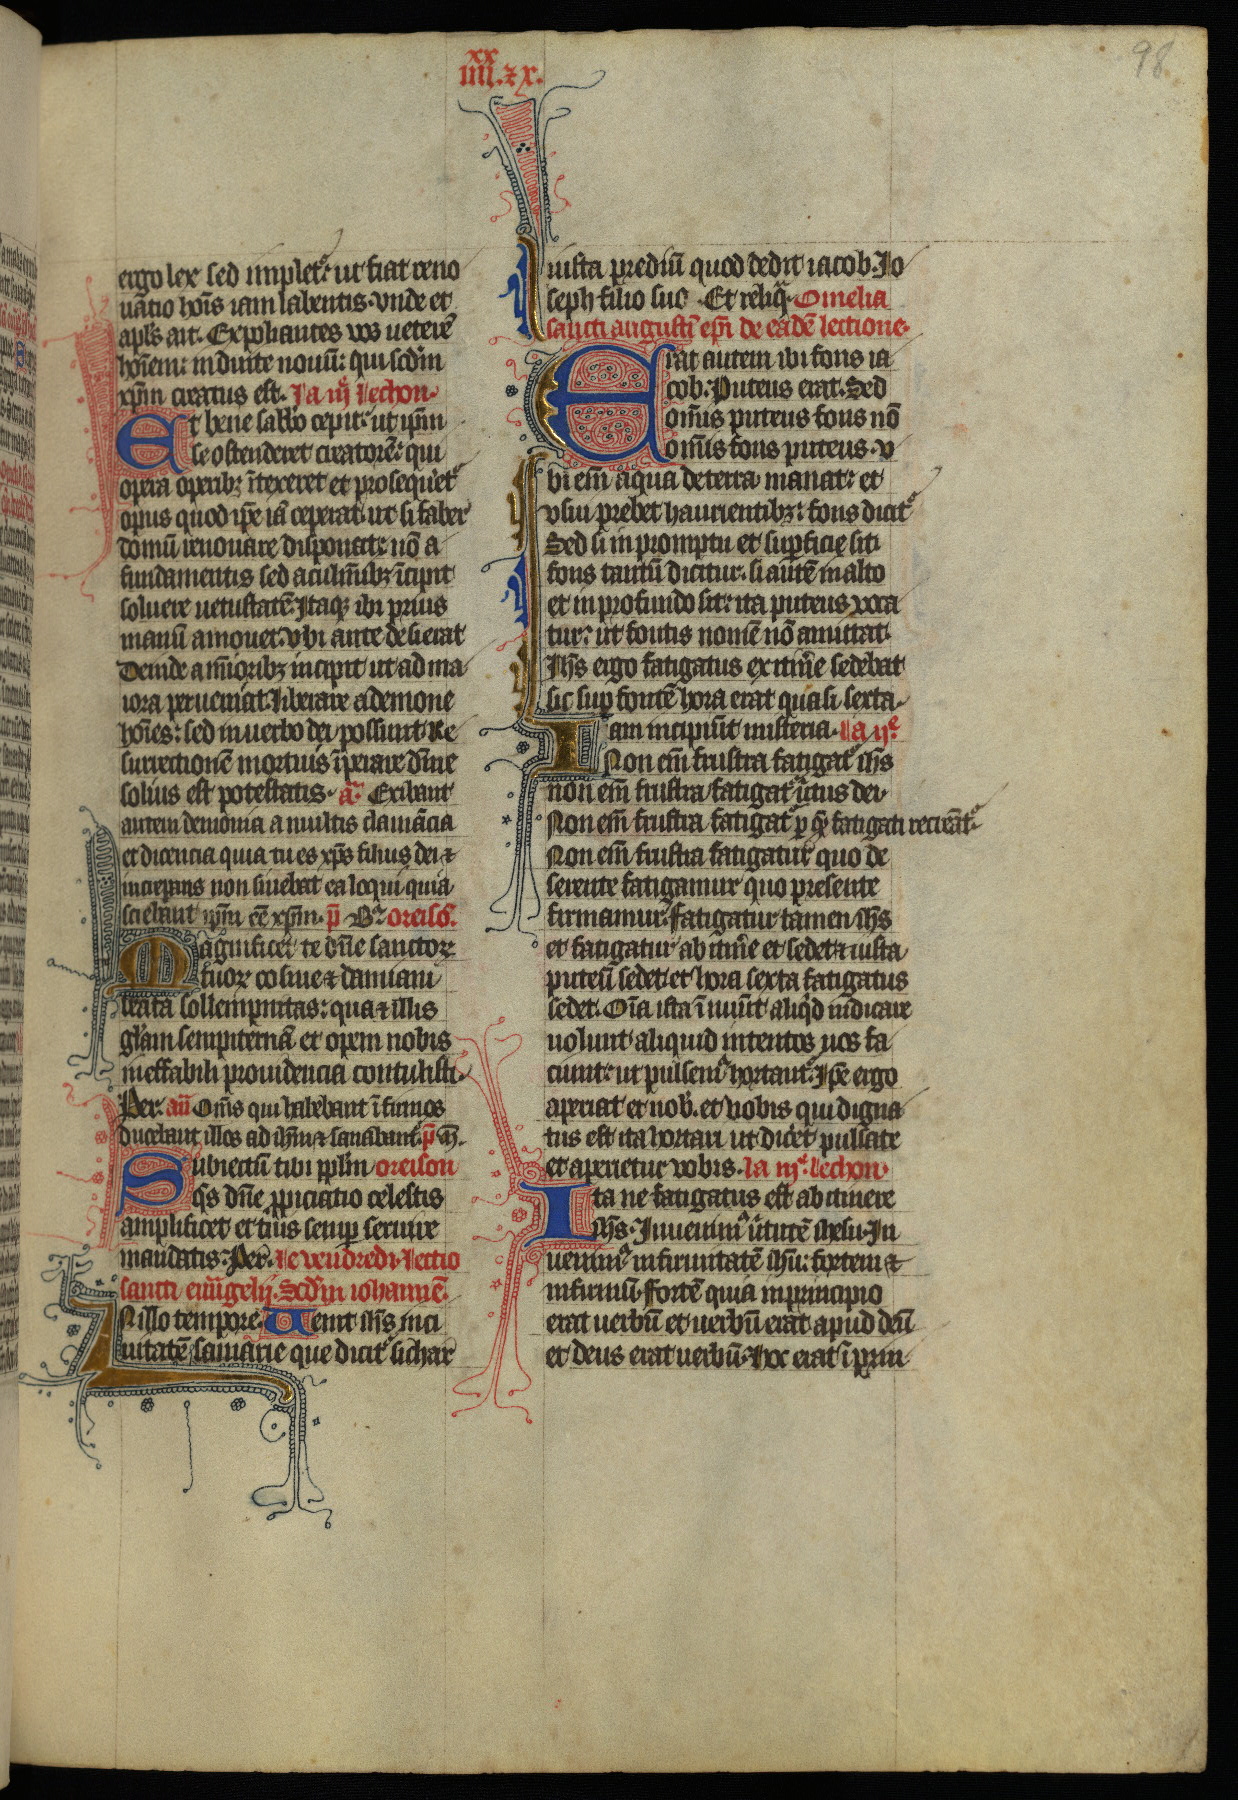 98
xx
iiii. ⁊ x.
ergo lex sed impletᷣ ut fiat reno
uatio hoīs iam labentis. vnde et
apl's ait. Expoliantes vos ueterē
hoīem: induite nouū: qui scd'm
xp̄m creatus est. la iij lechon.
Et bene sabb'o cepit: ut ip̄m
se ostenderet creatorē: qui
opera operibꝫ ītexeret et proseq'retᷣ
opus quod ip̄e iā ceperat. ut si faber
domū renouare disponat: nō a
fundamentis sed a culmībꝫ īcipit
soluere uetustatē. Itaqꝫ ibi prius
manū amouet. vbi ante desierat
Deinde a mīoribꝫ incipit ut ad ma
iora perueniat. liberare a demone
hoīes: sed in uerbo dei possunt Re
surrectionē mortuis īperare diuīe
solius est potestatis. a'. Exibant
autem demonia a multis clamācia
et dicencia quia tu es xp̄s filius dei ⁊
increpans non sinebat ea loqui quia
sciebant ip̄m eē xp̄m. p̄ oreisō.
Magnificet te dn̄e sanctoꝝ
tuoꝝ cosme ⁊ damiani
beata sollempnitas: qua ⁊ illis
gl'am sempiternā et opem nobis
ineffabili prouidencia contulisti.
Per. an̄ Om̄s qui habebant īfirmos
ducebant illos ad ih̄m ⁊ sanabantᷣ. p̄
Subiectū tibi pp̄l'm oreison
q̄s dn̄e ꝓpiciatio celestis
amplificet et tuis semꝑ seruire
mandatis. Per. le vendredi. lectio
sancti euu̅gelij. Scd'm iohannē.
In illo tempore. Uenit ih̄s in ci
uitatē samarie que dicitᷣ sichar
iuxta prediū quod dedit iacob. Io
seph filio suo. Et reliq̄. Omelia
sancti augustī ep̄i de eadē lectione.
Erat autem ibi fons ia
cob. Puteus erat. Sed
om̄is puteus fons nō
om̄is fons puteus. v
bi em̄ aqua de terra manat: et
vsui prebet haurientibꝫ: fons dicitᷣ
Sed si in promptu et suꝑficie siti
fons tantū dicitur. si autē in alto
et in profundo sit: ita puteus voca
tur: ut fontis nomē nō amittat.
Ih̄s ergo fatigatus ex itin̄e sedebat
sic suꝑ fontē hora erat quasi sexta.
Iam incipiūt misteria. la ij.ͤ
Non em̄ frustra fatigatᷣ ih̄s
non em̄ frustra fatigatᷣ u'tus dei.
Non em̄ frustra fatigatᷣ ꝑ quē fatigati recreātᷣ.
Non em̄ frustra fatigatur quo de
serente fatigamur quo presente
firmamur. Fatigatur tamen ih̄s
et fatigatur ab itin̄e et sedet ⁊ iuxta
puteū sedet et hora sexta fatigatus
sedet. Oīa ista īnuūt aliq'd indicare
uolunt aliquid intentos nos fa
ciunt: ut pulsem' hortantᷣ. Ip̄e ergo
aperiat et uob'. et nobis qui digna
tus est ita hortari ut dic'et pulsate
et aperietur vobis. la iij.ͤ lechon.
Ita ne fatigatus est ab itinere
ih̄s. Inuenim' u'tutē ihesu. In
uenim' infirmitatē ih̄u: fortem ⁊
infirmū. fortē quia in principio
erat uerbū et uerbū erat apud deū
et deus erat uerbū. Hoc erat ī prin